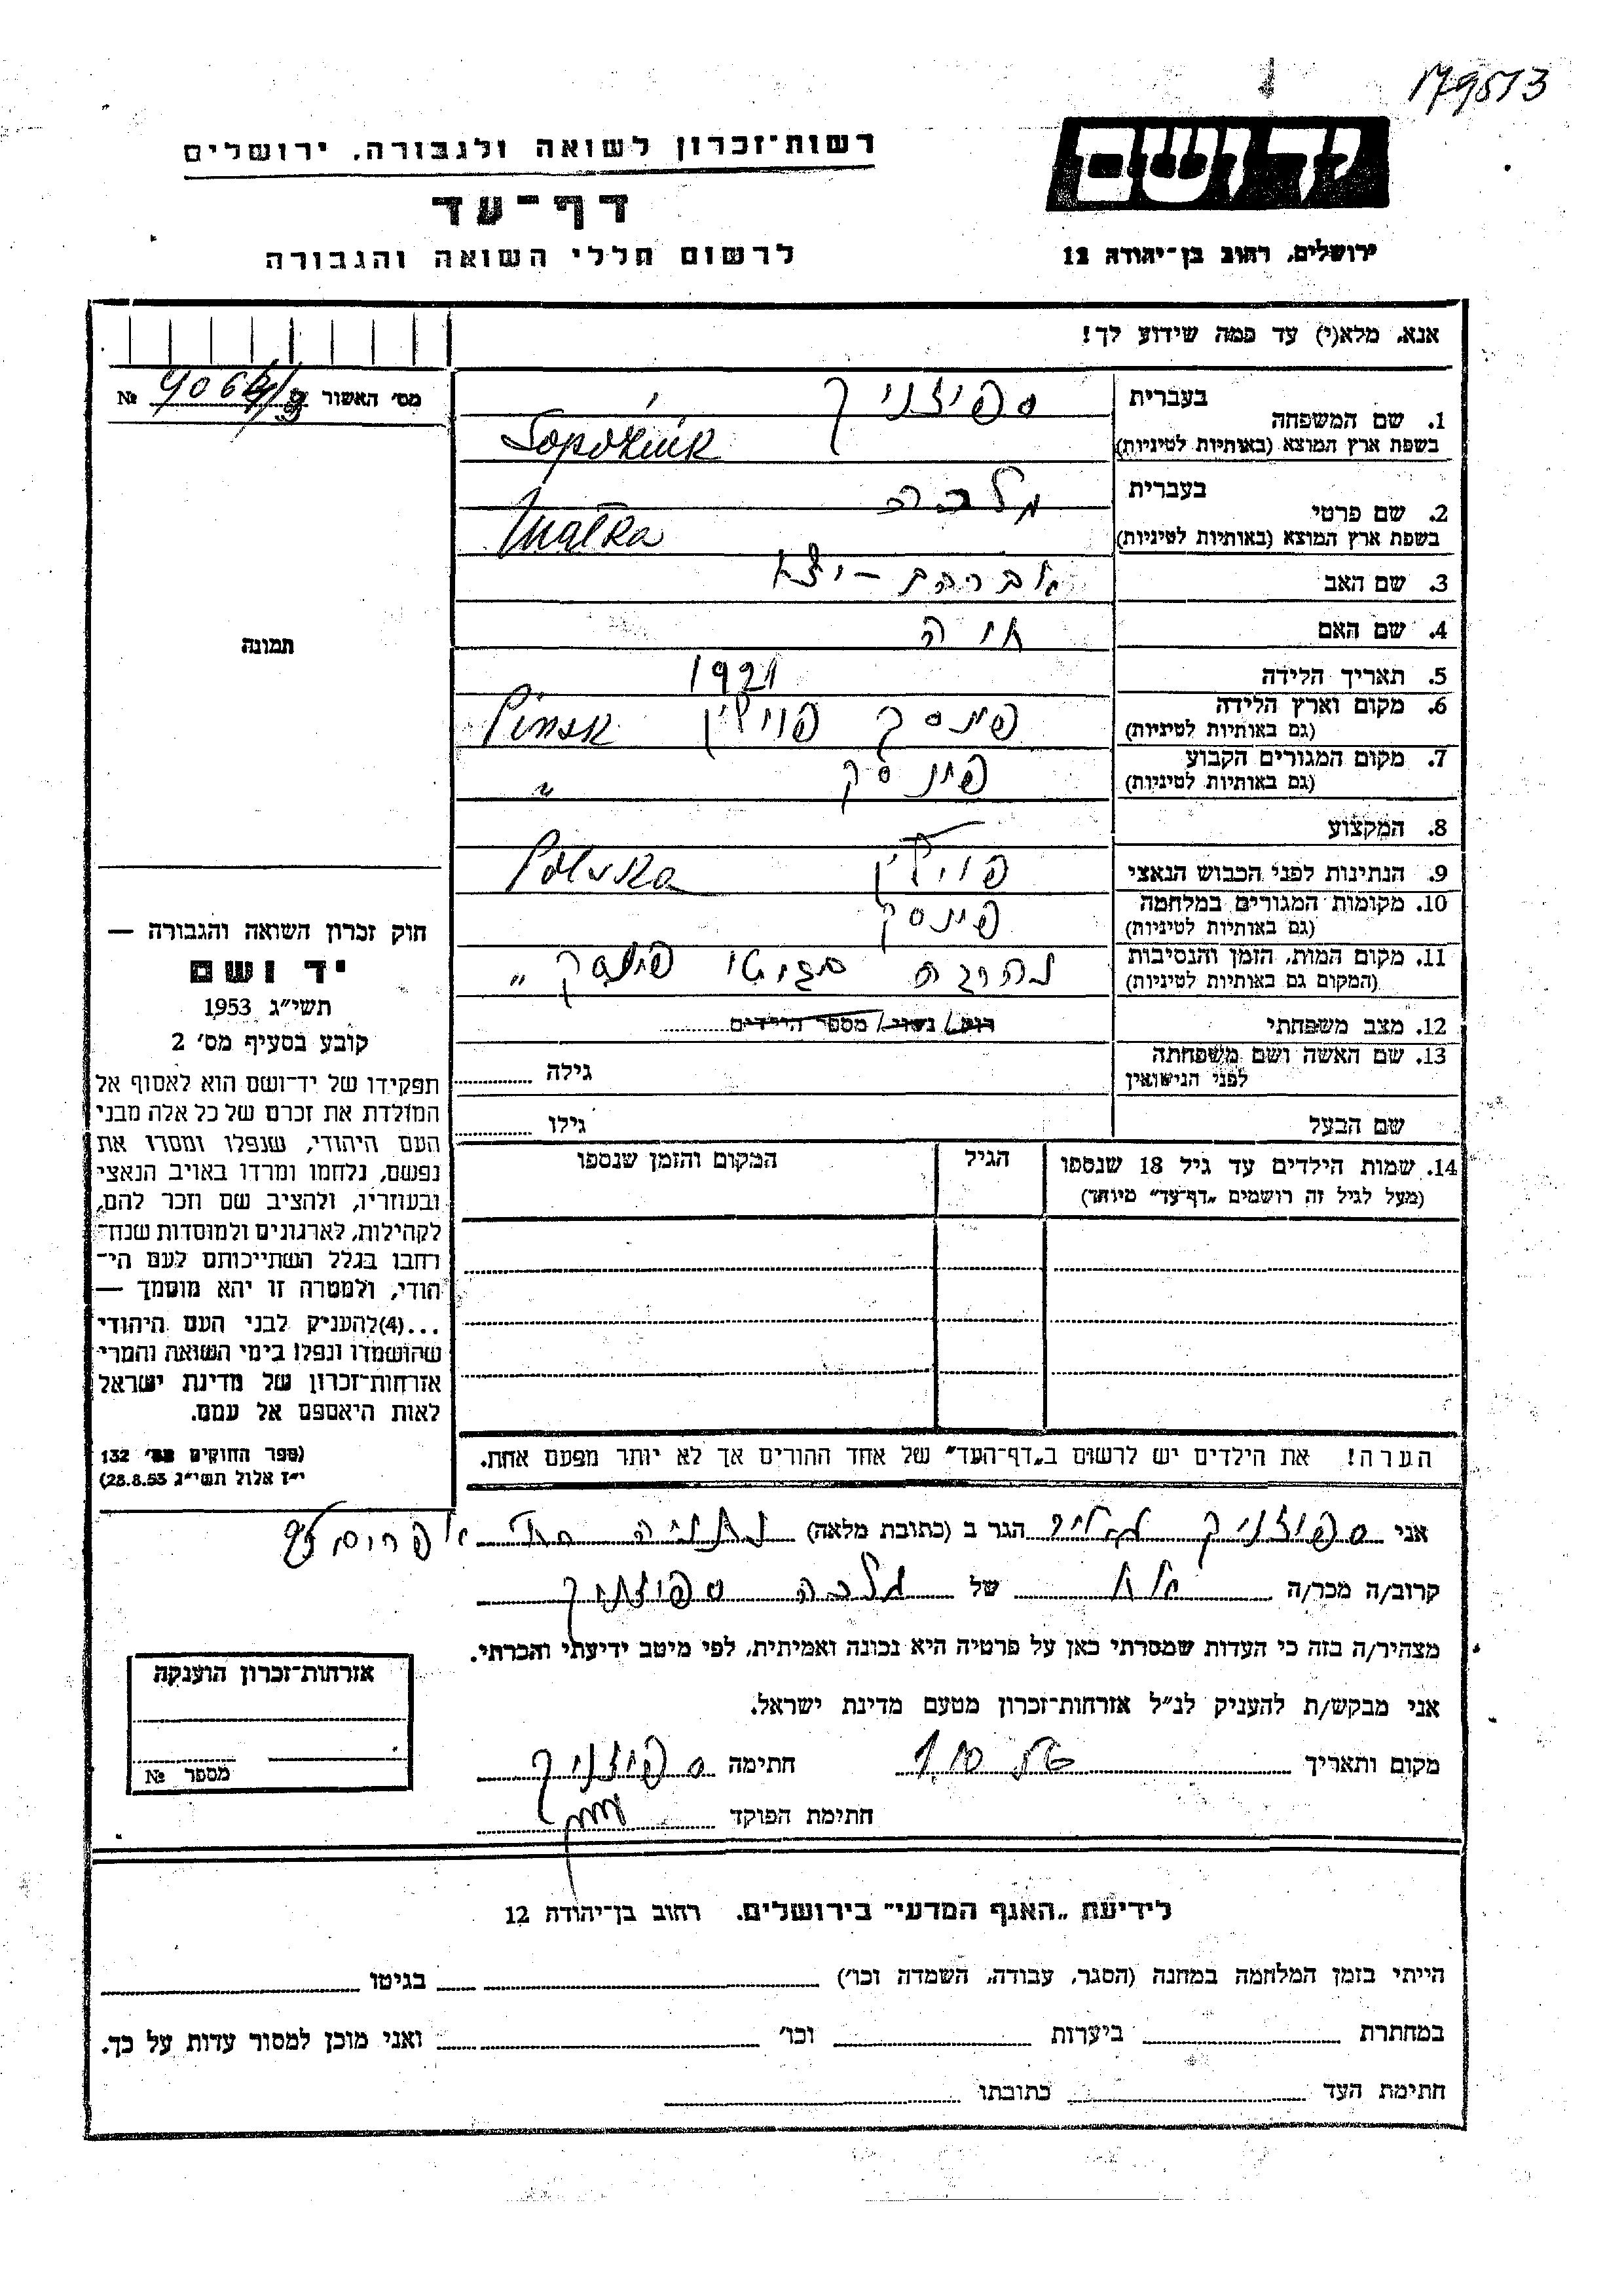 179513
יד ושם
רשות־זכרון לשואה ולגבורה, ירושלים
דף־עד
לרשום חללי השואה והגבורה
ירושלים, רחוב בן־יהודה 12
אנא, מלא(י) עד כמה שידוע לך!
מס׳ האשור № 9064/
1. שם המשפחה
בעברית ספוזניק
בשפת ארץ המוצא (באותיות לטיניות) Sopożnik
2. שם פרטי
בעברית מלכה
בשפת ארץ המוצא (באותיות לטיניות) Malka
3. שם האב אברהם -
4. שם האם חיה
5. תאריך הלידה 1921
6. מקום וארץ הלידה (גם באותיות לטיניות) פינסק פוילין Pinsk
7. מקום המגורים הקבוע (גם באותיות לטיניות) פינסק "
8. המקצוע —
9. הנתינות לפני הכבוש הנאצי פוילין Polska
10. מקומות המגורים במלחמה (גם באותיות לטיניות) פינסק
11. מקום המות, הזמן והנסיבות (המקום גם באותיות לטיניות) נהרגה מגיטו פינסק "
12. מצב משפחתי רווק/ נשוי/ מספר הילדים
13. שם האשה ושם משפחתה לפני הנישואין גילה
שם הבעל גילו
14. שמות הילדים עד גיל 18 שנספו (מעל לגיל זה רושמים „דף־עד" מיוחד)
הגיל
המקום והזמן שנספו
הערה! את הילדים יש לרשום ב„דף־העד" של אחד ההורים אך לא יותר מפעם אחת.
תמונה
חוק זכרון השואה והגבורה —
יד ושם
תשי״ג 1953
קובע בסעיף מס׳ 2
תפקידו של יד־ושם הוא לאסוף אל
המולדת את זכרם של כל אלה מבני
העם היהודי, שנפלו ומסרו את
נפשם, נלחמו ומרדו באויב הנאצי
ובעוזריו, ולהציב שם וזכר להם,
לקהילות, לארגונים ולמוסדות שנח־
רחבו בגלל השתייכותם לעם הי־
הודי, ולמטרה זו יהא מוסמך —
...(4)להעניק לבני העם היהודי
שהושמדו ונפלו בימי השואה והמרי
אזרחות־זכרון של מדינת ישראל
לאות היאספם אל עמם.
(ספר החוקים מס׳ 132
י״ז אלול תשי״ג 28.8.53)
אני ספוזניק הגר ב (כתובת מלאה) נתניה אפרים
קרוב/ה מכר/ה אח של מלכה ספוזניק
מצהיר/ה בזה כי העדות שמסרתי כאן על פרטיה היא נכונה ואמיתית, לפי מיטב ידיעתי והכרתי.
אני מבקש/ת להעניק לנ״ל אזרחות־זכרון מטעם מדינת ישראל.
מקום ותאריך חתימה ספוזניק
חתימת הפוקד
אזרחות־זכרון הוענקה
מספר №
לידיעת „האגף המדעי" בירושלים. רחוב בן־יהודה 12
הייתי בזמן המלחמה במחנה (הסגר, עבודה, השמדה וכו׳) בגיטו
במחתרת ביערות וכו׳ ואני מוכן למסור עדות על כך.
חתימת העד כתובתו